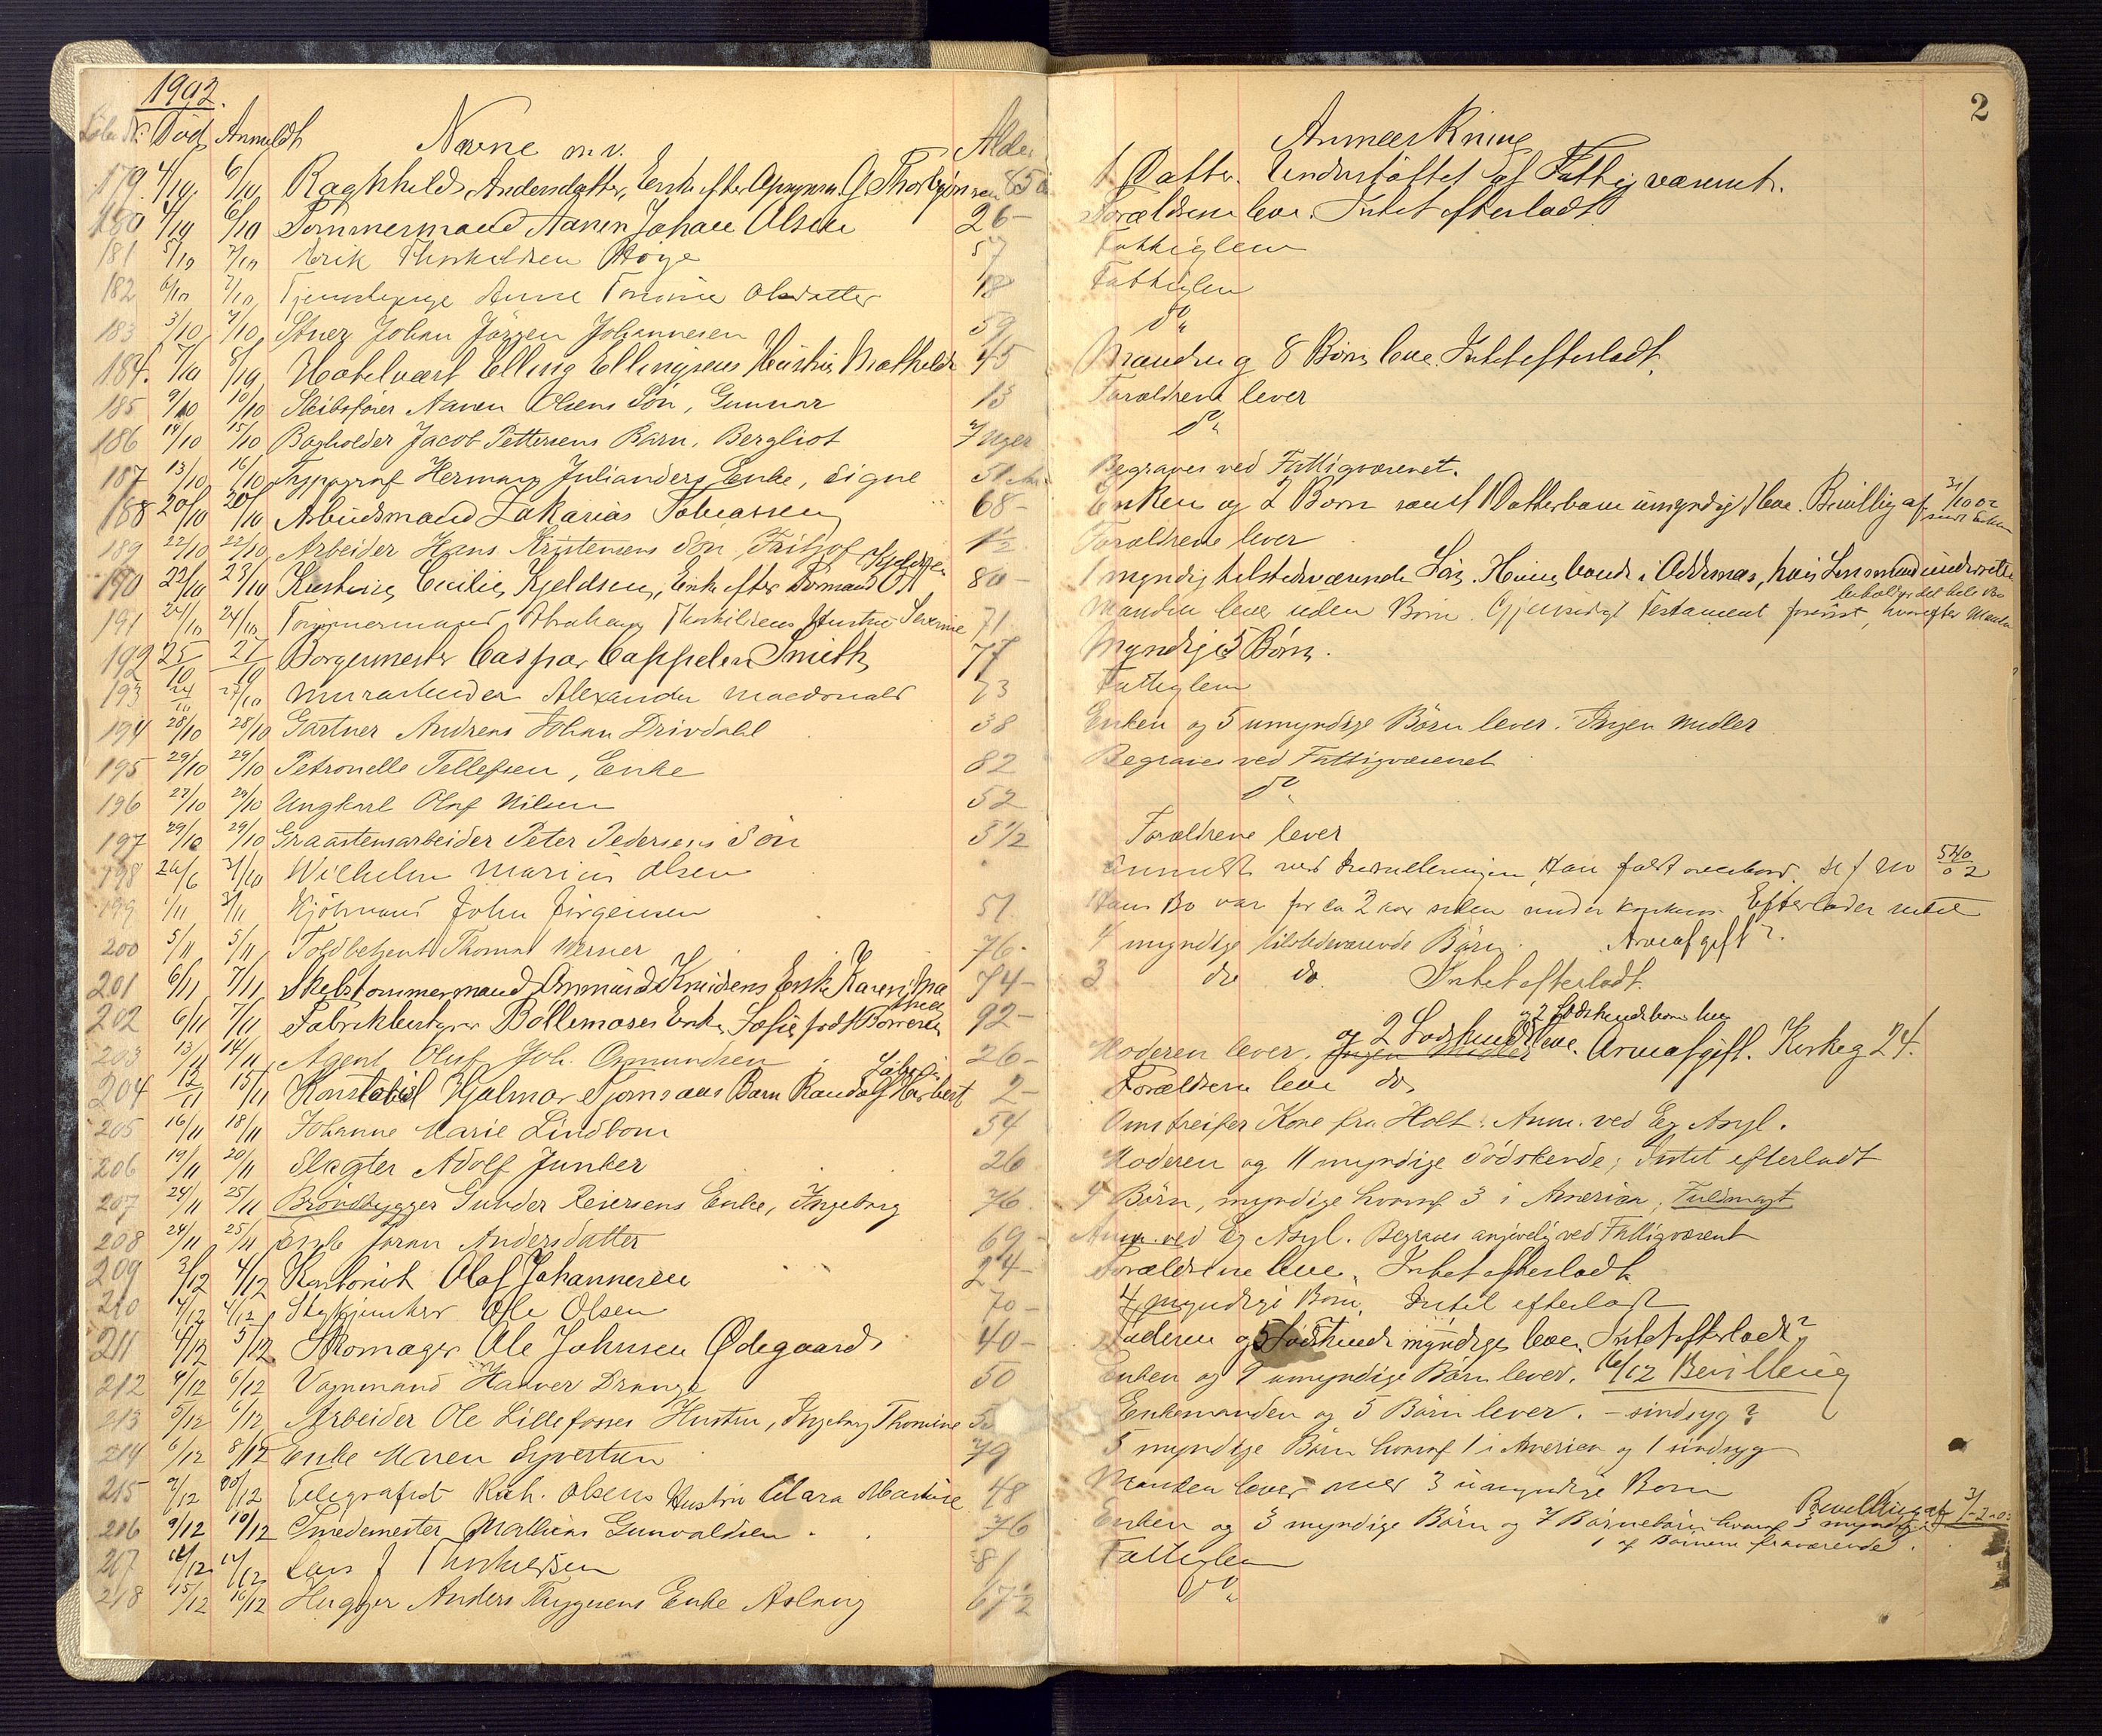 1902.
2
Löbe No. Död Anmeldt Navne m.v. Alder Anmærkning
179. 4/10 6/10 Raghnhild Andersdatter, Enke efter G Thorbjørnsen 85 1 Datter. Understöttet af Fattigvæsenet.
180 4/10 6/10 Tømmermand Aanen Johan Olsen 26- Forældrene leve. Intet efterladt
181 5/10 7/10 Erik Thorkildsen Høye 57 Fattiglem
182 6/10 7/10 Tjenestepige Anne Tomine Olsdatter 18 Fattiglem
183 3/10 7/10 Johan Jörgen Johannesen 59 do
184. 7/10 8/10 Hotelvært Elling Ellingsens Hustru Mathilde 45 Manden og 8 Børn leve. Intet efterladt.
185 9/10 10/10 Skibsfører Aanen Olsens Søn, Gunnar 13 Forældrene lever
186 14/10 15/10 Bogholder Jacob Pettersens Barn, Bergliot 7 Uger do
187 13/10 16/10 Typograf Herman Julianders Enke, Signe 51 Begraves ved Fattigvæsenet.
188 20/10 20/10 Arbeidsmand Zakarias Tobiassen 68- Enken og 2 Børn samt 1 Datterbarn umyndig leve. Bevilling af 31/10 02
189 22/10 22/10 Arbeider Hans Kristensens Søn, Fritjof 1½ Forældrene lever
190 22/10 23/10 Kirstine Cecilie Kjeldsen, Enke efter Formand O A Kjeldsen 80- 1 myndig tilstedeværende Søn. i Oddernes, hvis Lensmand underrettes
191 24/10 24/10 Tømmermand Abraham Thorkildsens Hustru Severine 71 Manden lever uden Børn. Gjensidigt Testament forevist, hvorefter Manden
beholder det hele Bo
192 25/10 27/10 Borgermester Caspar Cappelen Smith 77 Myndige 5 Børn.
193 24/10 27/10 Murarbeider Alexander Macdonald 73 Fattiglem
194 28/10 28/10 Gartner Andreas Johan Drivdahl 38 Enken og 5 umyndige Börn lever. Ingen Midler
195 29/10 29/10 Petronelle Tellefsen, Enke 82 Begraves ved Fattigvæsenet
196 27/10 29/10 Ungkarl Olaf Nilsen 52 do
197 29/10 29/10 Graastensarbeider Peter Pedersens Søn 3½ Forældrene lever
198 26/6 31/10 Wilhelm Marius Olsen Anmeldt ved Indrulleringen, Han faldt overbord. 540/02
199 1/11 3/11 Kjöbmand John Jörgensen 51 Hans Bo var for ca 2 aar siden under Konkurs. Efterlader intet
200 5/11 5/11 Toldbetjent Thomas Werner 76- 4 myndige tilstedeværende Börn. Arveafgift?.
201 6/11 7/11 Skibstømmermand Ommund Knudsens Enke Karen Mathea 74- 3 do do. Intet efterladt.
202 6/11 7/11 Fabrikbestyrer Böllemoses Enke, Sofie født Borresen 92-
203 13/11 14/11 Agent Oluf Joh. Ommundsen 26- Moderen lever. Ingen Midler og 2 Søskende og 2 Søskendebørn leve. Arveafgift. Kirkeg 24.
204 12/11 15/11 Konstabel Hjalmar Bjørnsaas Barn Randolf Herbert 2- Forældrene leve do
205 16/11 18/11 Johanne Marie Lindbom 54 Omstreifer Kone fra Holt. Anm. ved Eg Asyl.
206 19/11 20/11 Slagter Adolf Junker 26 Moderen og 11 myndige Södskende; Intet efterladt
207 24/11 25/11 Bröndbygger Gunder Reiersens Enke, Ingeborg 76. 4 Börn, myndige hvoraf 3 i Amerika, Fuldmagt
208 24/11 25/11 Enke Joran Andersdatter 69- Anm. ved Eg Asyl. Begraves angivelig ved Fattigvæsent
209 3/12 4/12 Kontorist Olaf Johannesen 24- Forældrene leve. Intet efterladt
210 4/12 4/12 Ole Olsen 70- 4 myndige Börn. Intet efterladt
211 4/12 5/12 Skomager Ole Johnsen Ødegaard 40- Faderen og 5 Søskende myndige leve. Intet efterladt?
212 4/12 6/12 Vognmand Haaver Drange 50 Enken og 9 umyndige Börn lever. 16/12 Bevilling
213 5/12 6/12 Arbeider Ole Lillefosses Hustru, Ingeborg Thomine Enkemanden og 5 Börn lever. - sindsyg?
214 6/12 8/12 Enke Maren Syvertsen 79 5 myndige Börn hvoraf 1 i Amerika og 1 sindsyg
215 9/12 10/12 Telegrafist Olsens Hustru Clara Marthine 48 Manden lever med 3 umyndige Børn
216 9/12 10/12 Smedemester Mathias Gunvaldsen 76 Enken og 3 myndige Börn og 7 Börnebörn hvoraf 3 myndige. Bevilling af 3/-2-03
1 af Börnene fraværende.
217 12/12 12/12 Lars J Thorkildsen 81 Fattiglem
218 15/12 16/12 Anders Thygesens Enke Aslaug 67½ do